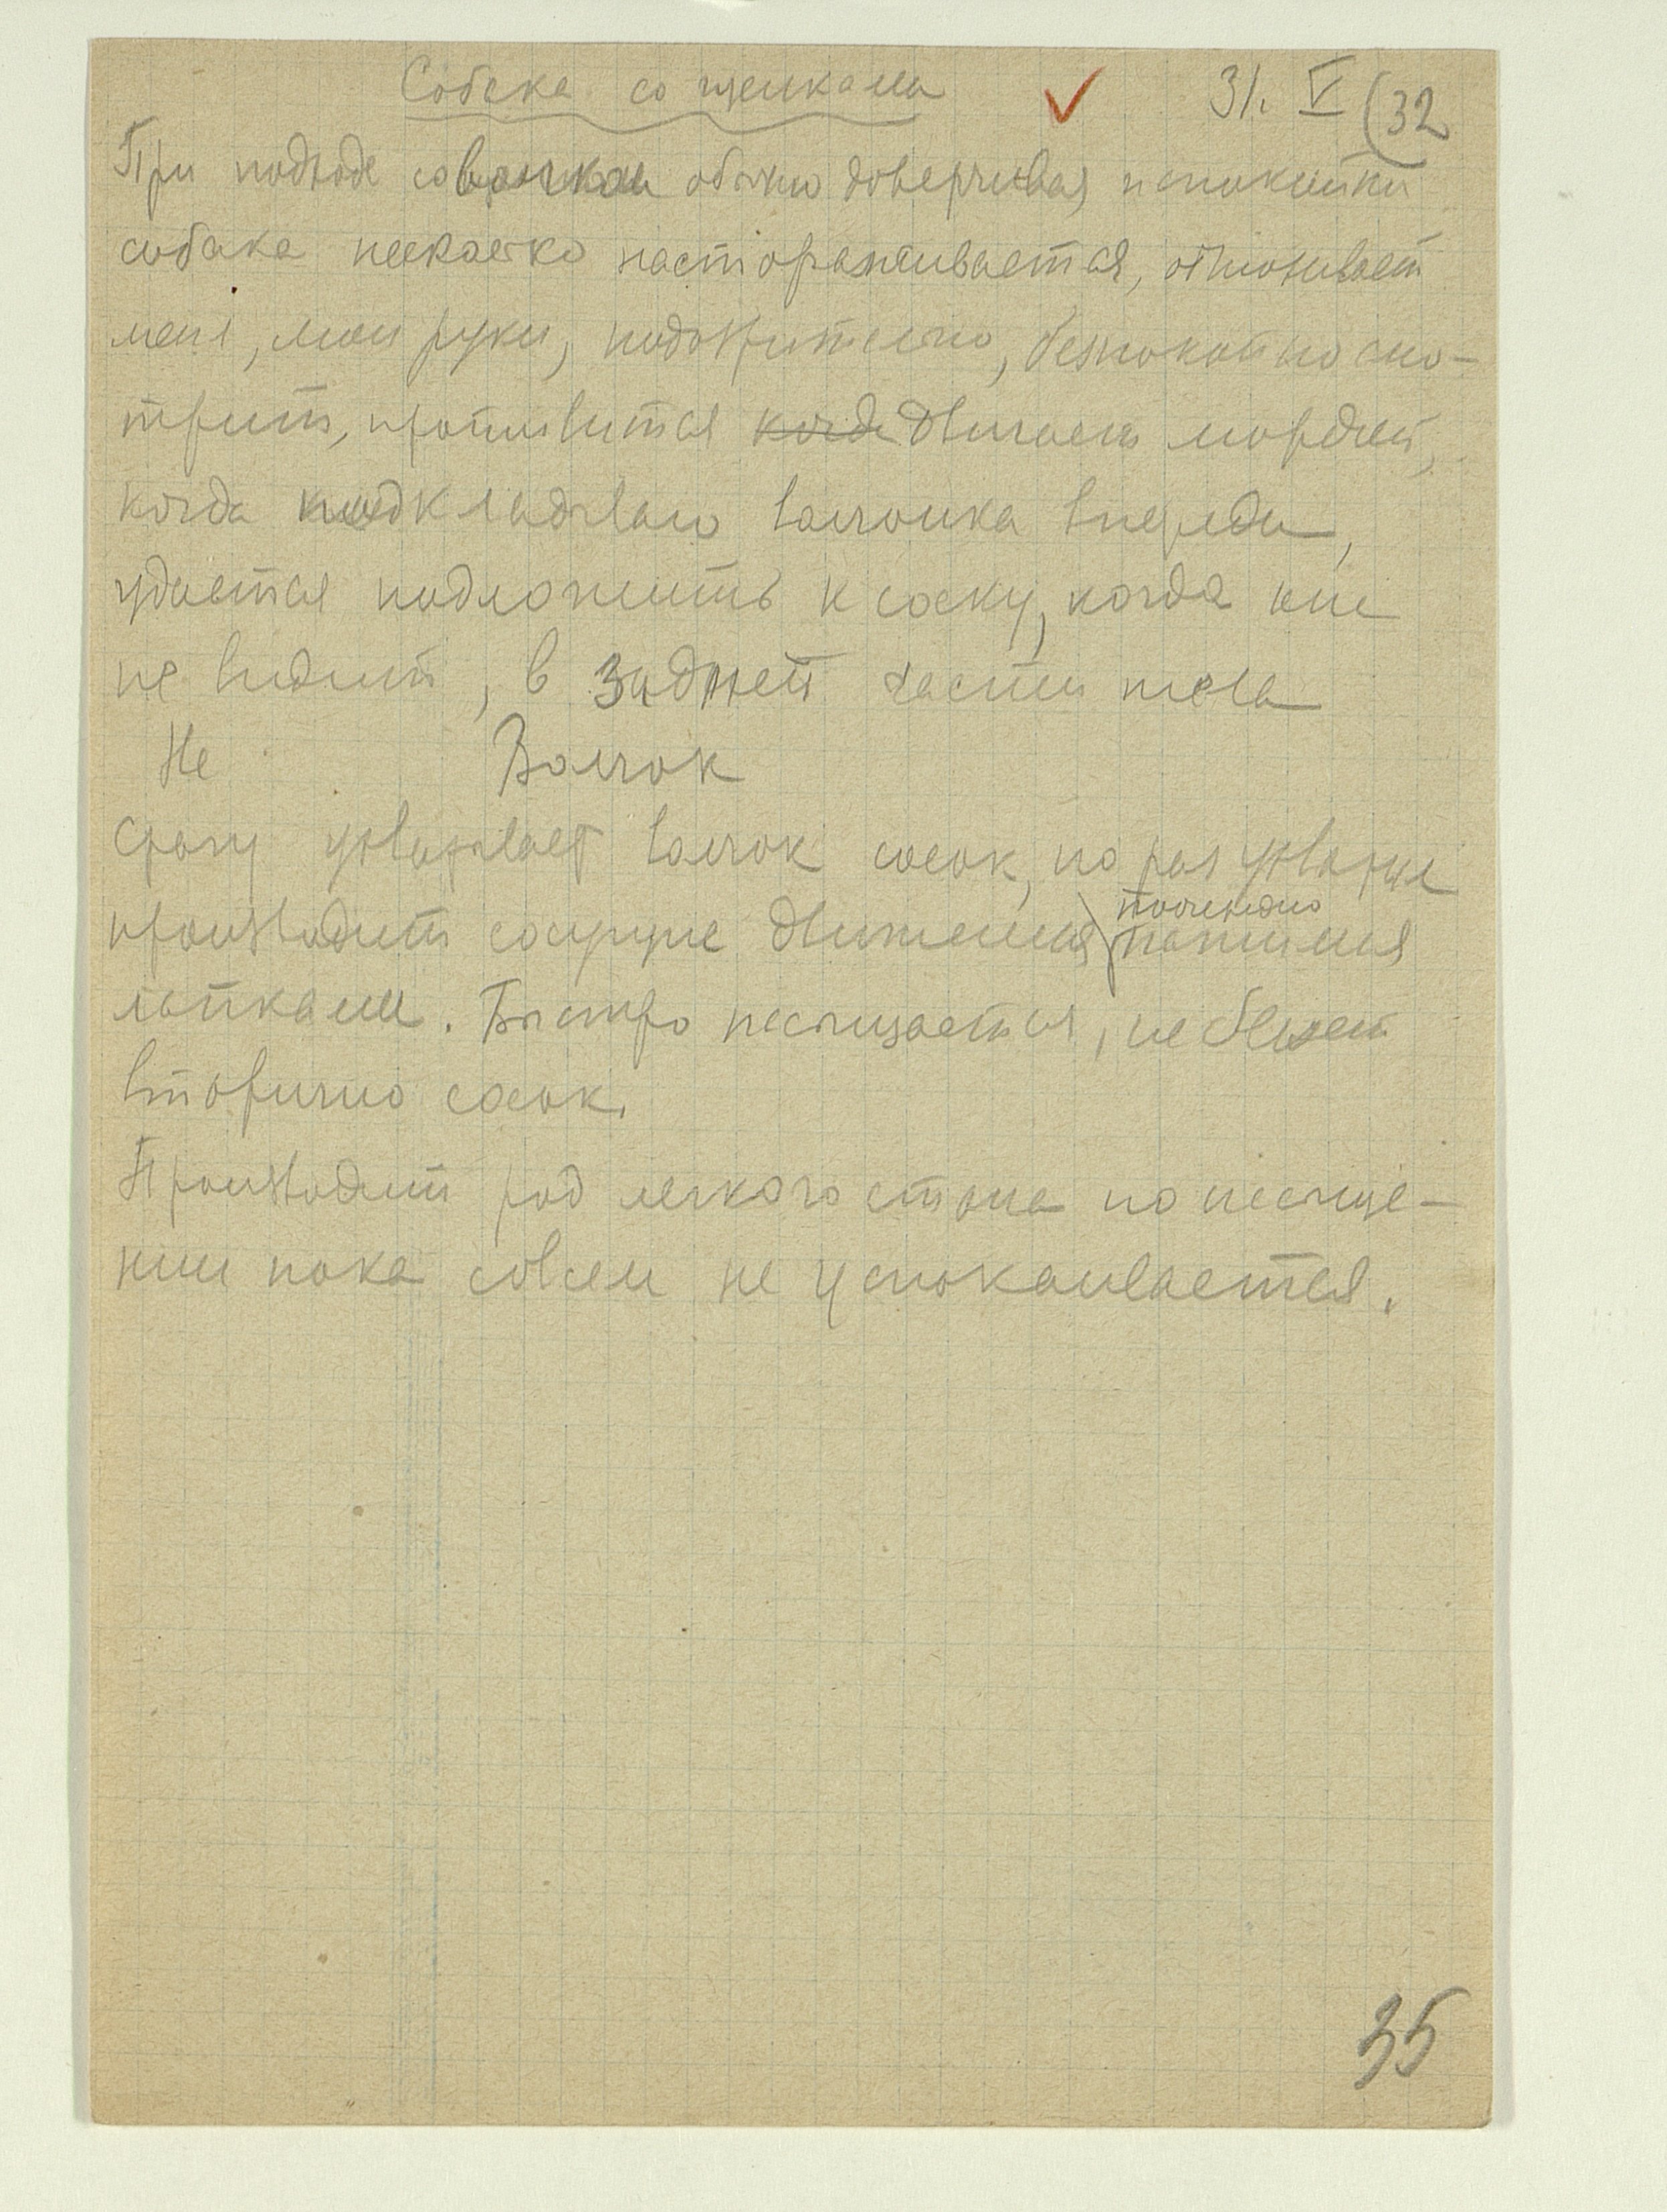 Собака со щенками 31. V (32
При подходе со волчком обычно доверчивая и спокойная
собака несколько настораживается, обнюхивает
меня, мои руки, подозрительно, беспокойно смо-
трит, противится когда двигаем мордой,
когда подкладываю волчонка впереди,
удается подложить к соску, когда она
не видит, в задней части тела
Не Волчок
Сразу ухватывает волчок сосок, но раз ухватив
производит сосущие движения
лапками. Быстро насыщается, не берет
вторично сосок.
Производит род легкого стона по насыще-
нии пока совсем не успокаивается.
35